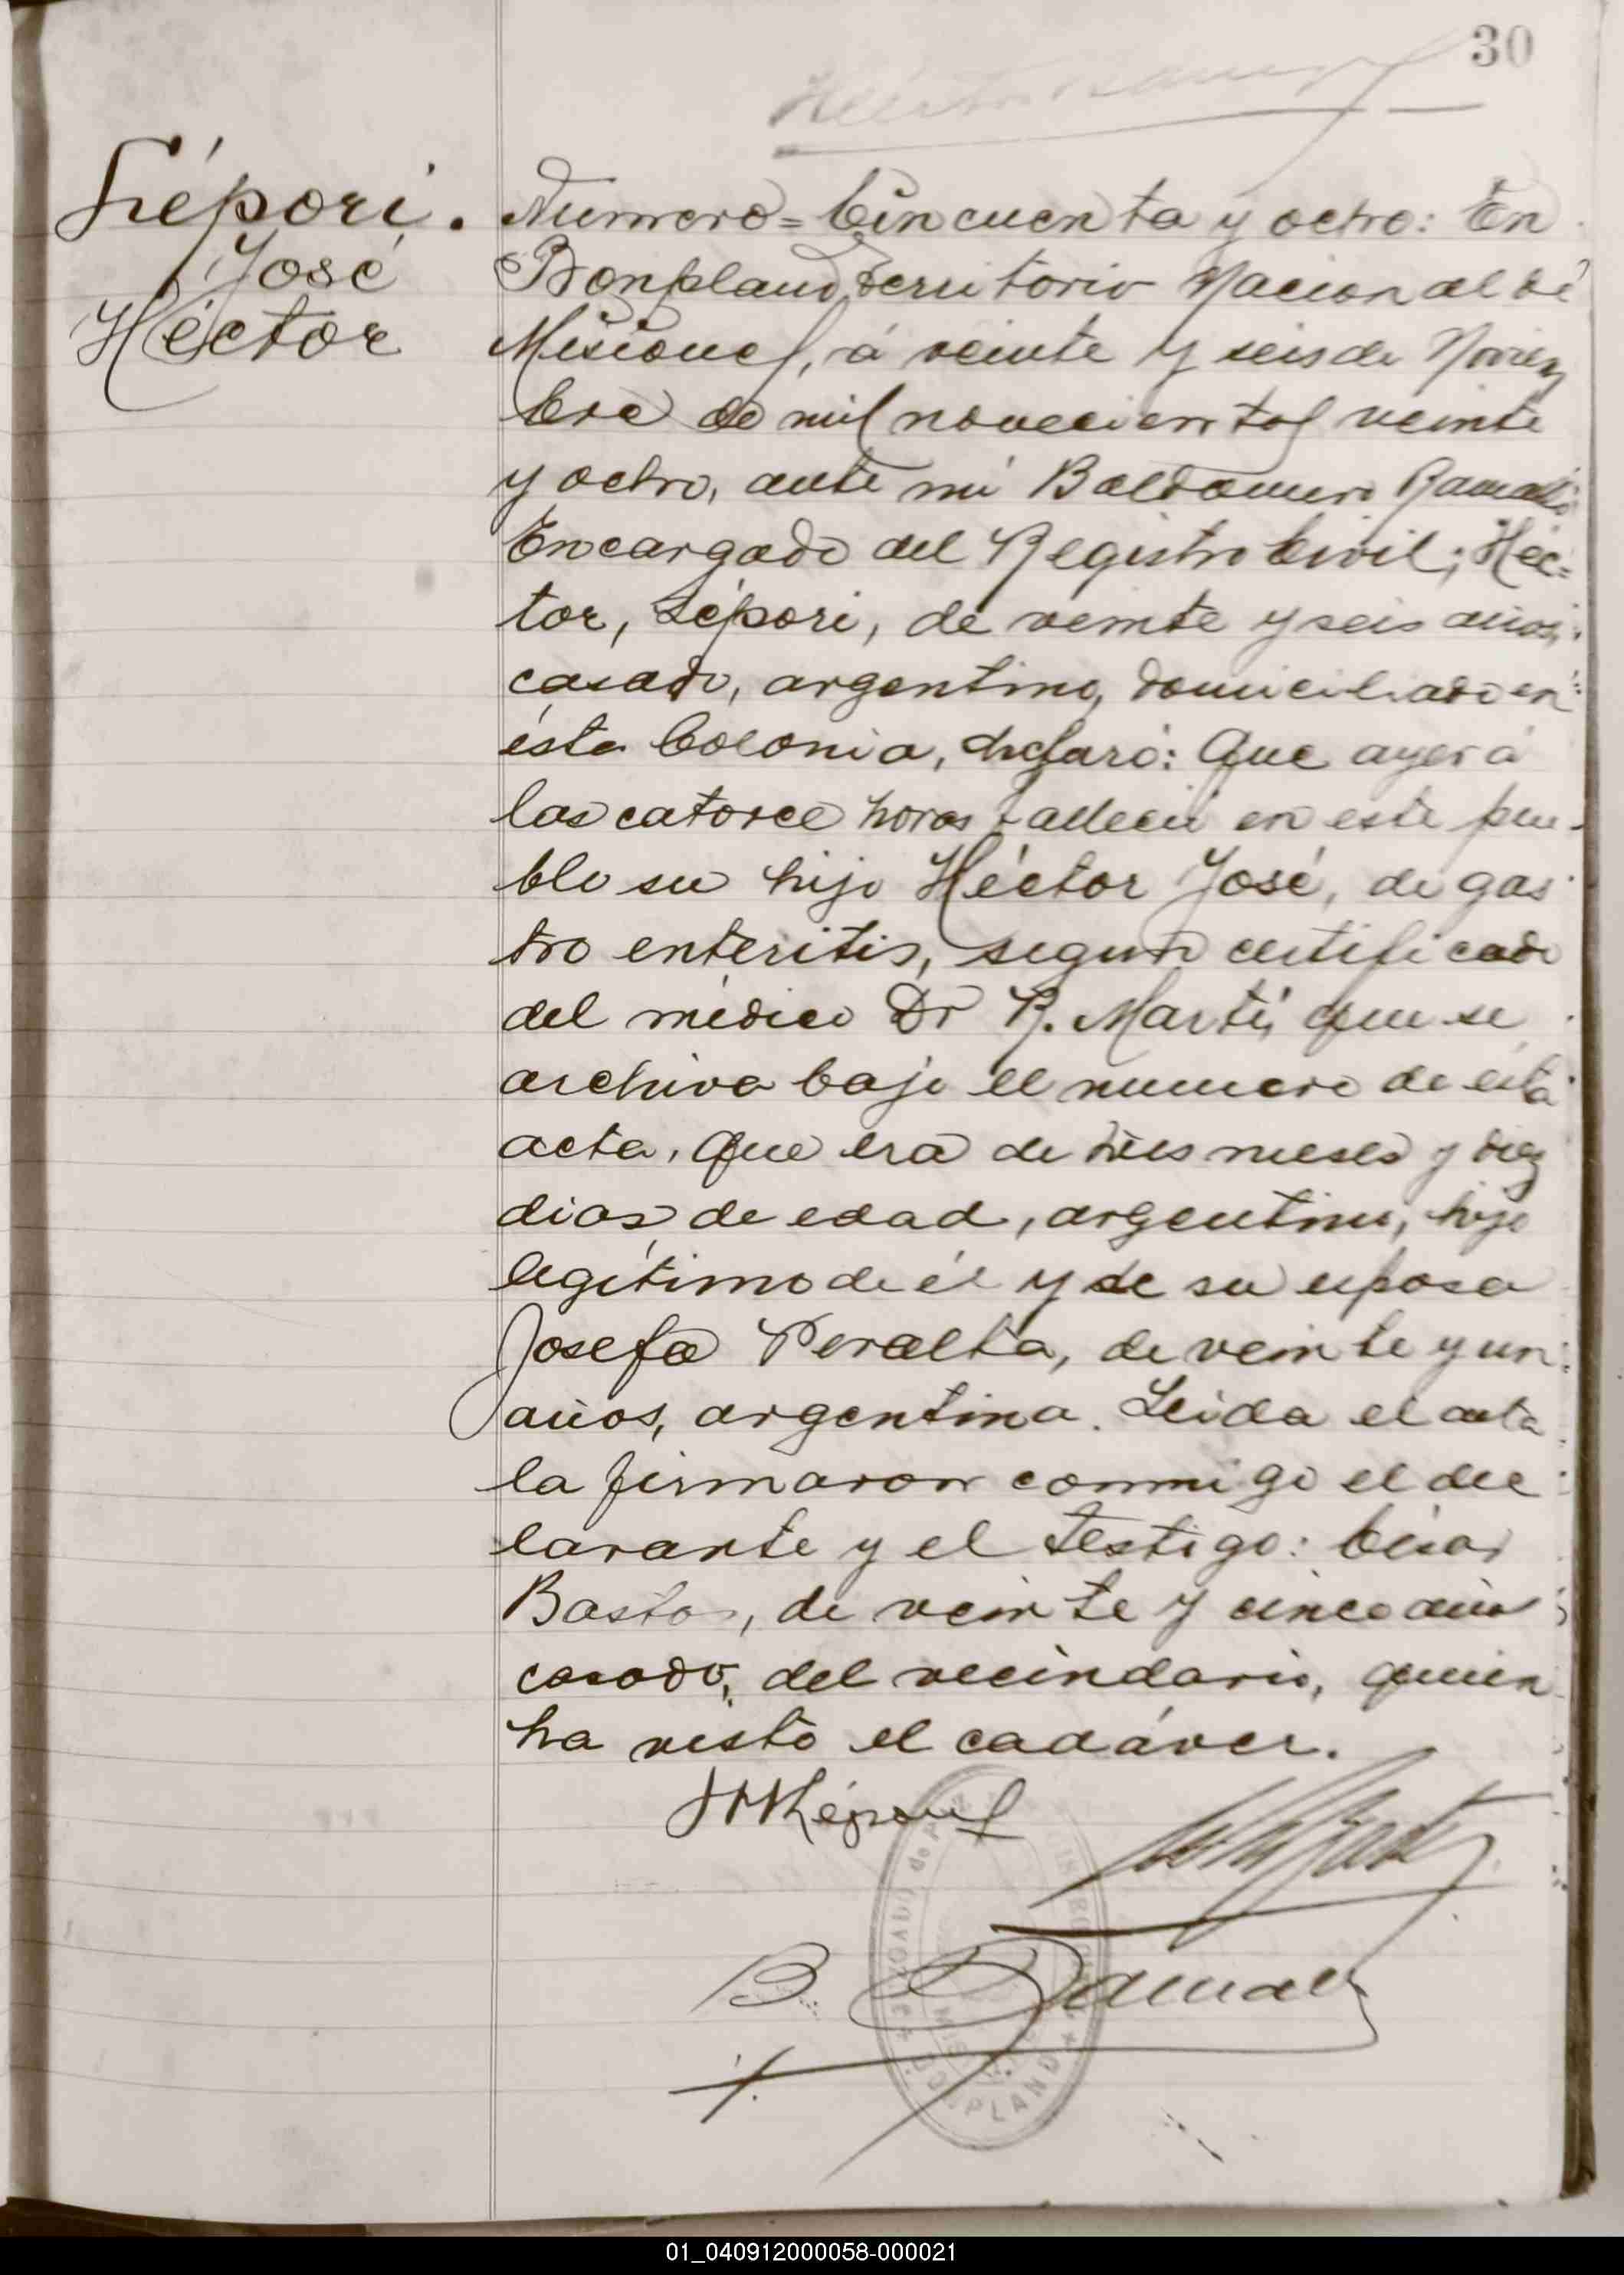 30
Lépori.
José
Héctor
Numero = Cincuenta y ocho: En
Bonpland Territorio Nacional de
Misiones, á veinte y seis de Noviem
bre de mil novecientos veinte
y ocho, ante mi Baldomero Ramallo
Encargado del Registro Civil; Héc=
tor, Lépori, de veinte y seis años,
casado, argentino, domiciliado en
ésta Colonia, declaró: Que ayer á
las catorce horas falleció en este pue-
blo su hijo Héctor José, de gas
tro enteritis, segun certificado
del médico Dr R. Martí, que se
archiva bajo el numero de ésta
acta, Que era de tres meses y diez
dias de edad, argentino, hijo
legítimo de él y de su esposa
Josefa Peralta, de veinte y un
años, argentina. Leida el acta
la firmaron conmigo el dec
larante y el testigo: César
Bastos, de veinte y cinco años
casado, del vecindario, quien
ha visto el cadáver.
B.
BONPLAND
01_040912000058-000021